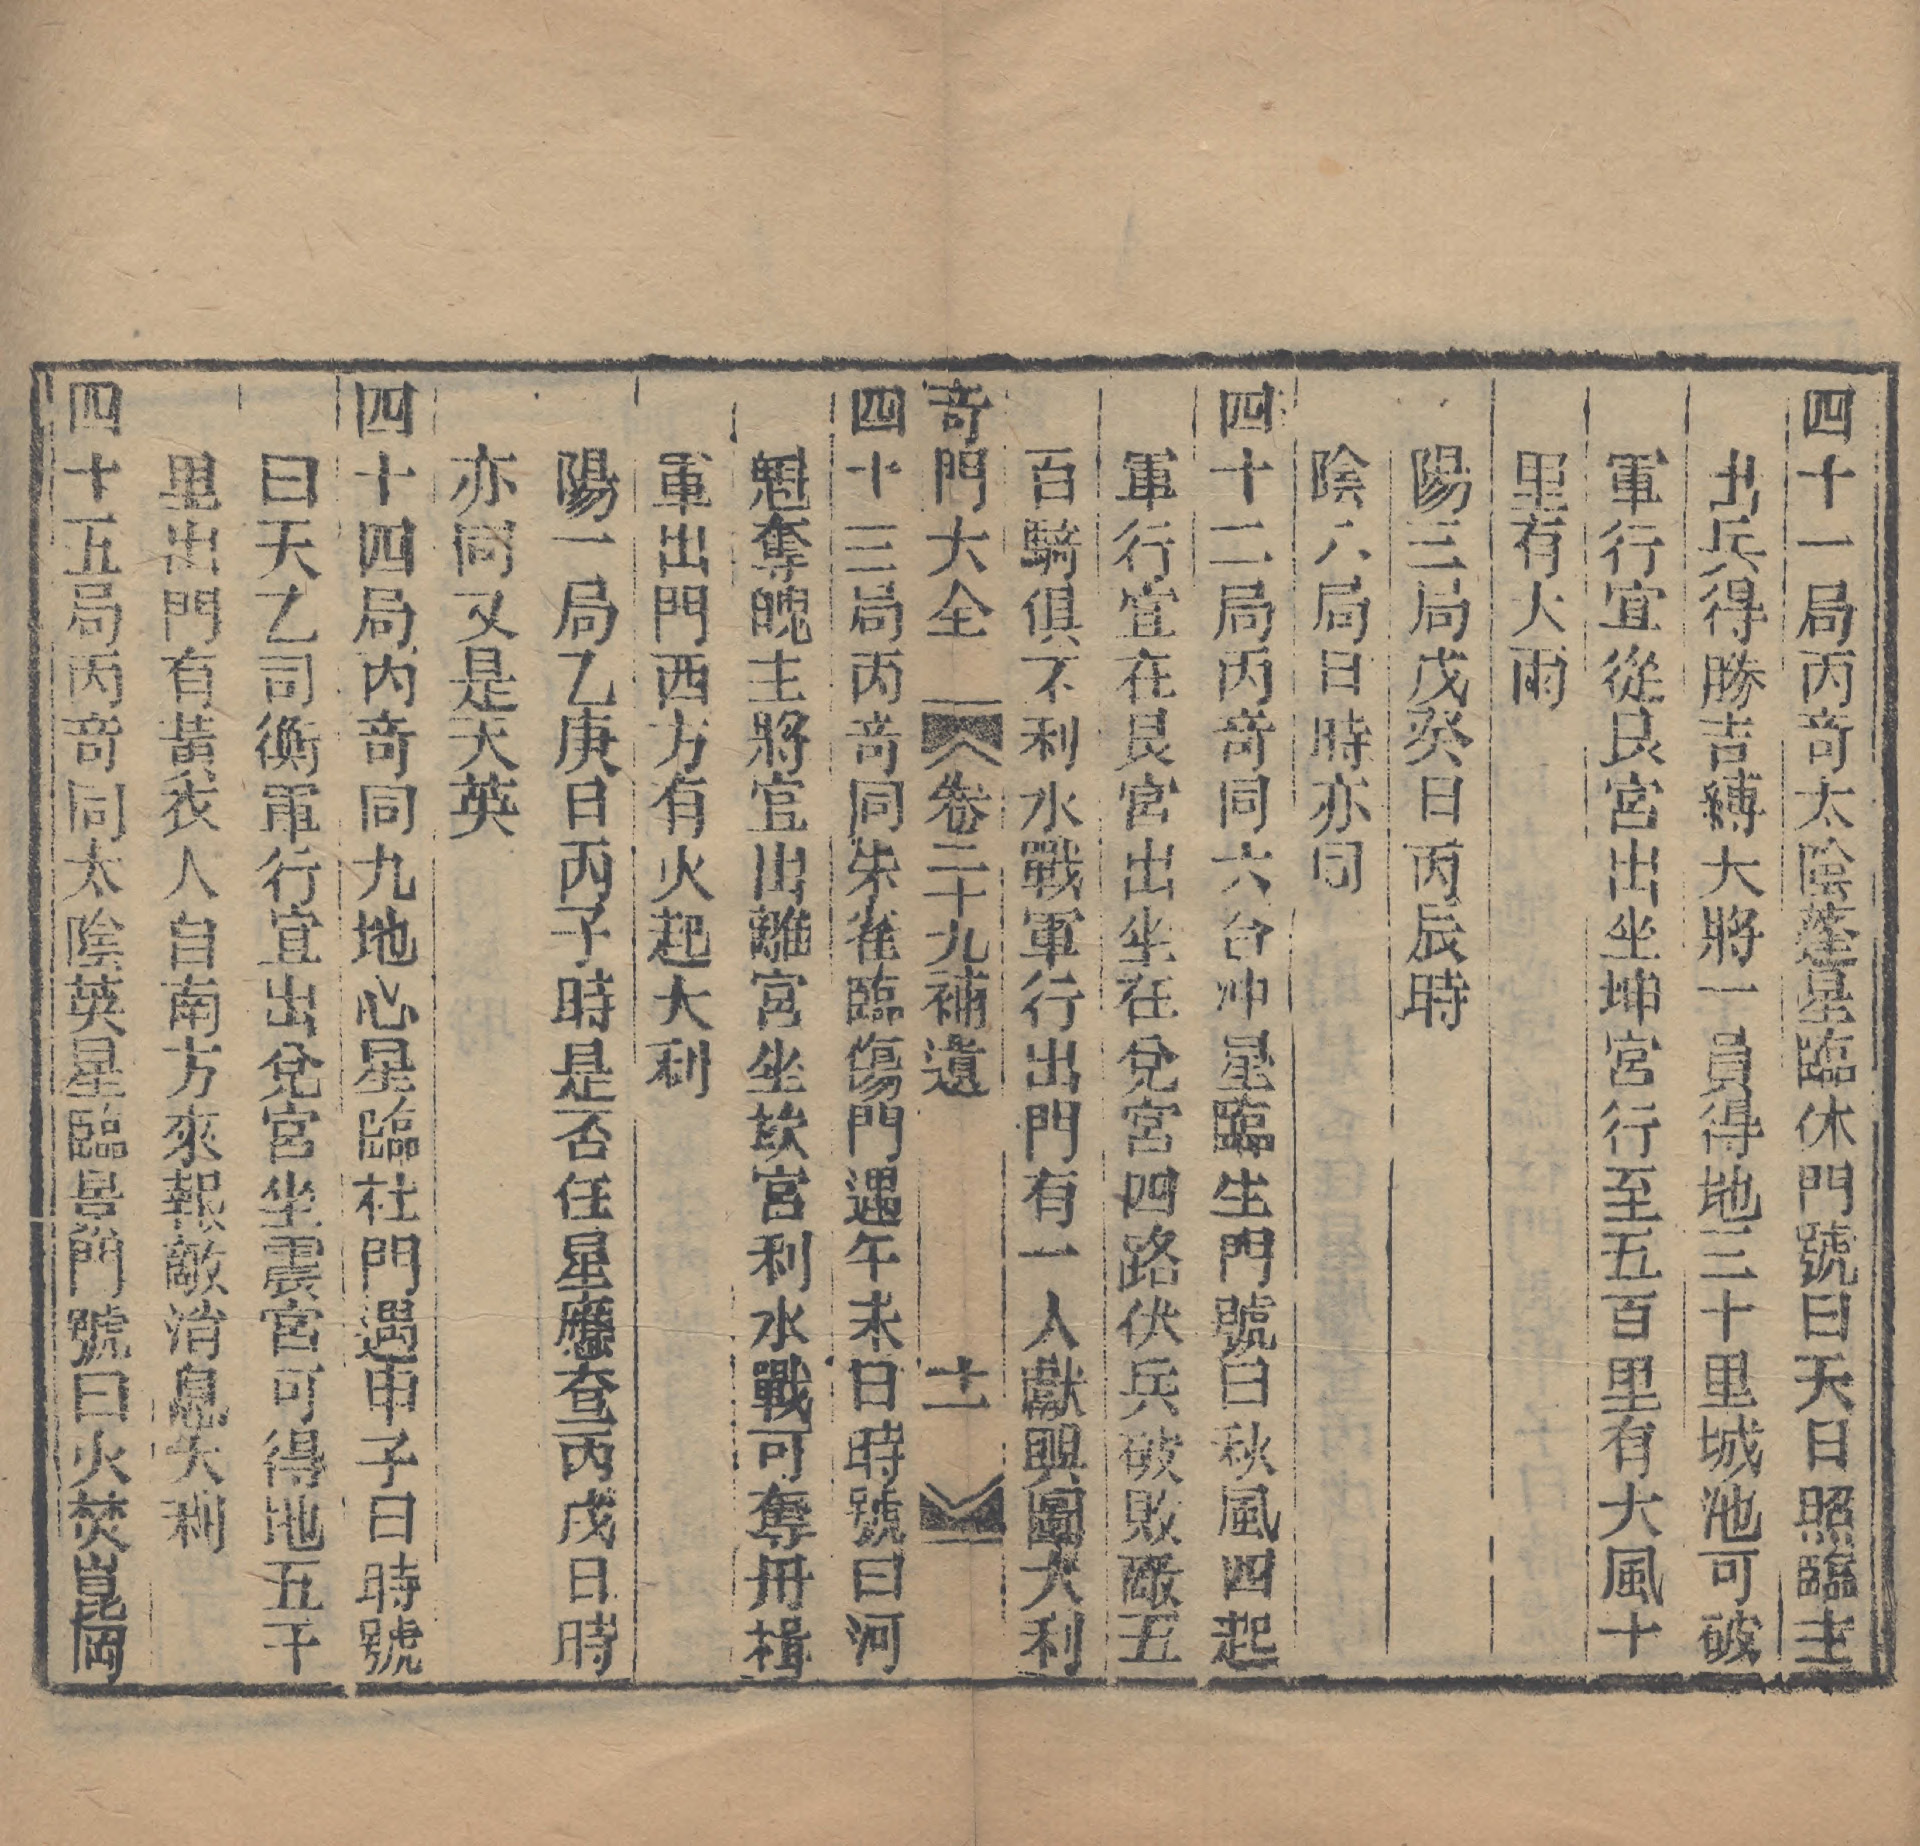 四十一局丙奇太陰蓬星臨休門號曰天日照臨主
出兵得勝吉縛大將一員得地三十里城池可破
軍行宜從艮宮出坐坤宮行至五百里有大風十
里有大雨
陽三局戊癸日丙辰時
陰六局日時亦同
四十二局丙奇同六合沖星臨生門號曰秋風四起
軍行宜在艮宮出坐在兌宮四路伏兵破敗敵五
百騎俱不利水戰軍行出門有一人獻輿圖大利
奇門大全 卷二十九補遺 十一
四十三局丙奇同朱雀臨傷門遇午未日時號曰河
魁奪魄主將宜出離宮坐坎宮利水戰可奪舟楫
軍出門西方有火起大利
陽一局乙庚日丙子時是否任星應查丙戌日時
亦同又是天英
四十四局丙奇同九地心星臨杜門遇甲子日時號
曰天乙司衡軍行宜出兌宮坐震宮可得地五千
里出門有黃衣人自南方來報敵消息大利
四十五局丙奇同太陰英星臨景門號曰火焚崑岡